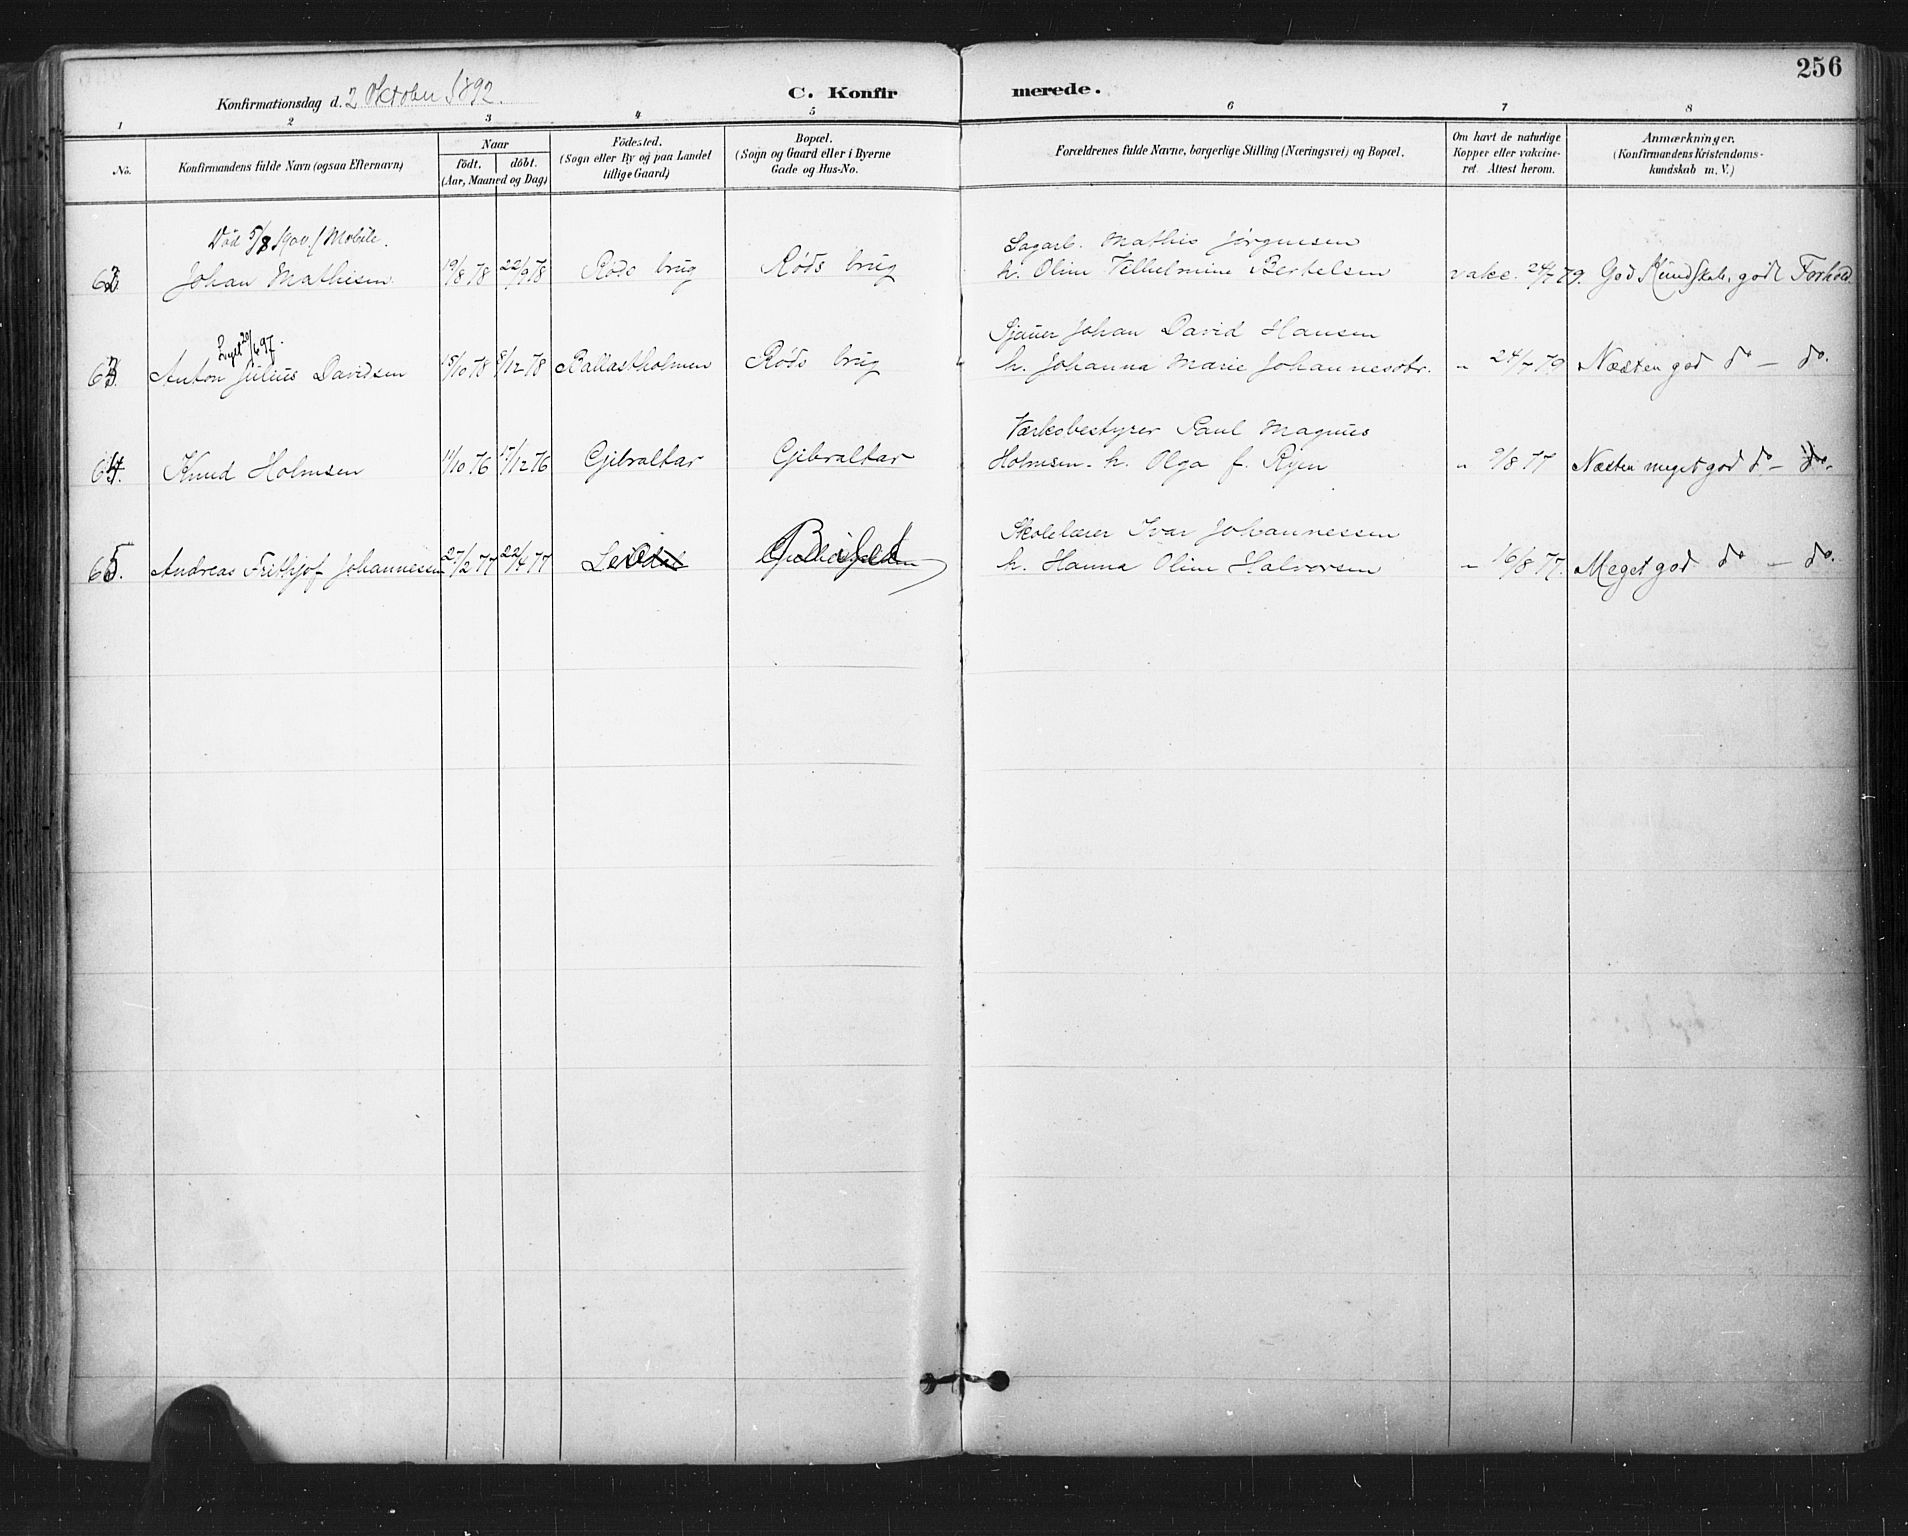 256
Konfirmationsdag d. 2 Oktober 1892.
C. Konfirmerede.
1 2 3 4 5 6 7 8
No.
Konfirmandens fulde Navn (ogsaa Efternavn)
Naar
født. døbt.
(Aar, Maaned og Dag)
Fødested.
(Sogn eller By og paa Landet
tillige Gaard)
Bopæl.
(Sogn og Gaard eller i Byerne
Gade og Hus-No.
Forældrenes fulde Navne, borgerlige Stilling (Næringsvei) og Bopæl.
Om havt de naturlige
Kopper eller vakcine-
ret. Attest herom.
Anmærkninger.
(Konfirmandens Kristendoms-
kundskab m. V.)
Død 5/8 1900 / Mobile.
Sagarb. Mathis Jørgensen
62. Johan Mathisen 19/8 78 22/9 78 Røds brug Røds brug h. Olim Vilhelmine Bertelsen vakc. 24/7 79. God Kundskab, godt Forhold.
20/6 97.
Sjauer Johan David Hansen
63. Anton Julius Davidsen 15/10 78 8/12 78 Ballastholmen Røds brug h. Johanna Marie Johannesdtr. " 24/7 79 Næsten god do — do.
Værksbestyrer Paul Magnus
64. Knud Holmsen 11/10 76 17/12 76 Gibraltar Gibraltar Holmsen - h. Olga f. Ryen " 9/8 77 Næsten meget god do — do.
Skolelærer Ivar Johannessen
65. Andreas Frithjof Johannessen 27/2 77 22/4 77 h. Hanna Olim Halvorsen " 16/8 77. Meget god do — do.